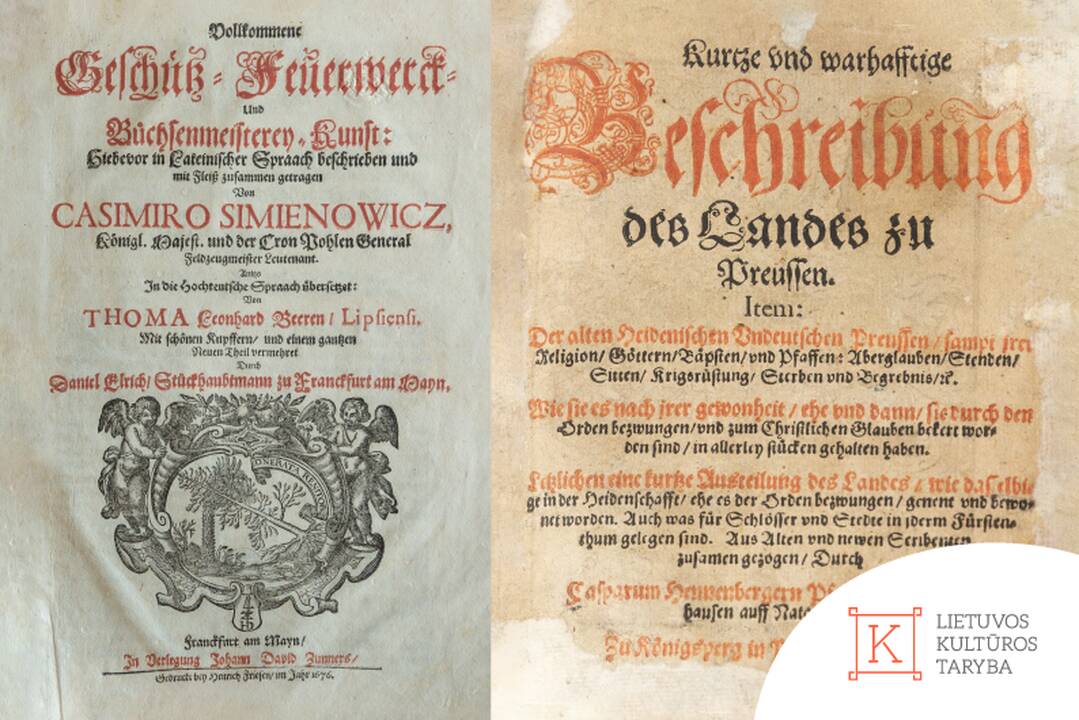 Vollkommene
Geschütz-Feuerwerck-
Und
Büchsenmeisterey-Kunst:
Hiebevor in Lateinischer Spraach beschrieben und
mit Fleiß zusammen getragen
Von
CASIMIRO SIMIENOWICZ,
Königl. Majest. und der Cron Pohlen General
Feldzeugmeister Leutenant.
Anitzo
In die Hochteutsche Spraach übersetzet:
Von
THOMA Leonhard Beeren / Lipsiensi.
Mit schönen Kupffern/ und einem gantzen
Neuen Theil vermehret
Durch
Daniel Elrich/ Stückhaubtmann zu Franckfurt am Mayn.
ONERATA RENITITUR
Franckfurt am Mayn/
In Verlegung Johann David Zunners/
Gedruckt bey Henrich Friesen/ im Jahr 1676.
Kurtze vnd warhafftige
Beschreibung
des Landes zu
Preussen.
Item:
Der alten Heidenischen Vndeutschen Preussen / sampt jrer
Religion/ Göttern/ Bäpsten/ vnd Pfaffen: Aberglauben/ Stenden/
Sitten/ Krigsrüstung/ Sterben vnd Begrebnis/ ꝛc.
Wie sie es nach jrer gewonheit / ehe vnd dann/ sie durch den
Orden bezwungen/ vnd zum Christlichen Glauben bekert wor-
den sind / in allerley stücken gehalten haben.
Letzlichen eine kurtze Austeilung des Landes / wie dasselbi-
ge in der Heidenschafft/ ehe es der Orden bezwungen / genent vnd bewo-
net worden. Auch was für Schlösser vnd Stedte in jderm Fürsten-
thum gelegen sind. Aus Alten vnd newen Scribenten
zusamen gezogen / Durch
Casparum Hennenbergern
hausen auff
Zu Königsperg in
K
LIETUVOS
KULTŪROS
TARYBA